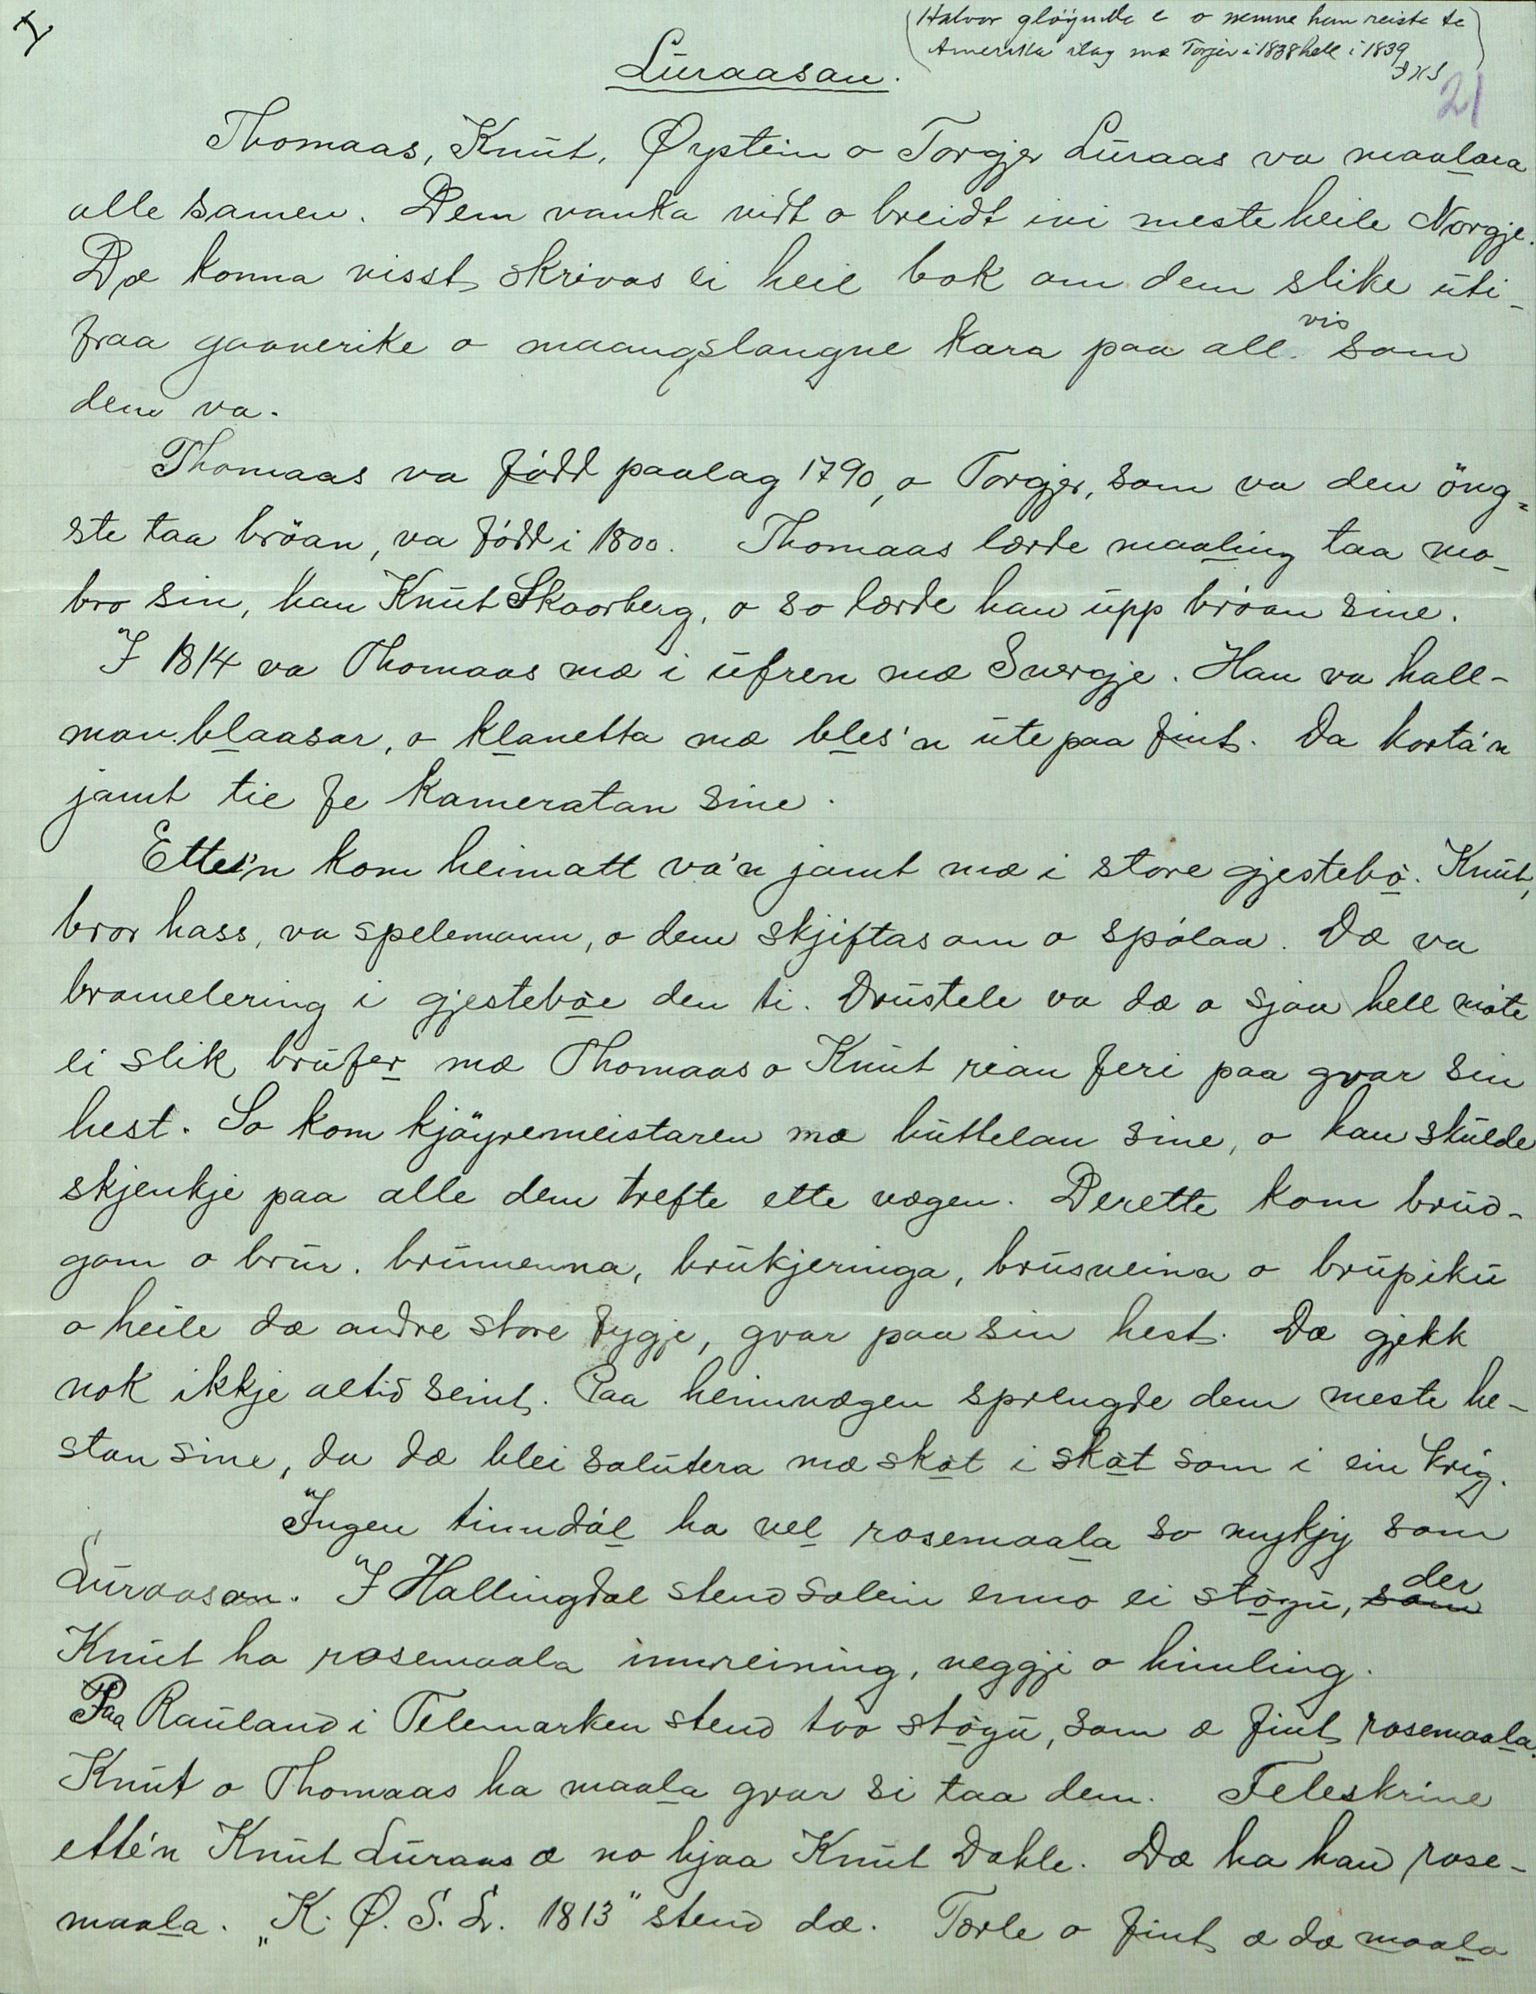 (Halvor gløymde e o nemne han reiste te
Amerika ilag mæ Torjer i 1838 hell i 1839
21
Luraasan.
Thomaas, Knut, Øystein o Torgjer Luraas va maalara
alle samen. Dem vanka vidt o breidt ivi meste heile Norgje.
Dæ konna visst skrivas ei heil bok om dem slike uti-
fraa gaaverike o maangslangne kara paa all vis som
dem va.
Thomaas va fódd paalag 1790, o Torgjer, som va den öng-
ste taa bröan, va fódd i 1800. Thomaas lærde maaling taa mo-
bro sin, han Knut Skaarberg, o so lærde han upp bróan sine.
I 1814 va Thomaas mæ i ufren mæ Sverge. Han va hall-
man blaasar, o klanetta mæ bles'n ute paa fint. Da korta'n
jamt tie fe kameratan sine.
Ette'n kom heimatt va'n jamt mæ i store gjestebò. Knut,
bror hass, va spelemann, o dem skjiftas om o spólaa. Dæ va
bramelering i gjestebòe den ti. Drustele va dæ o sjaa hell móte
ei slik brufer mæ Thomaas o Knut rian feri paa gvar sin
hest. So kom kjöyremeistaren mæ buttelan sine, o han skulde
skjenkje paa alle dem trefte ette vægen. Derette kom brud-
gom o brur. brumenna, brukjeringa, brusveina o brupiku
o heile dæ andre store fygje, gvar paa sin hest. Dæ gjekk
nok ikkje altid seint. Paa heimvægen sprengde dem meste he-
stan sine, da dæ blei salutera mæ skòt i skòt som i ein krig.
Ingen tinndól ha vel rosemaala so mykjy som
Luraasan. I Hallingdal stend solein enno ei stògu, som der
Knut ha rosemaala innreining, veggji o himling.
Paa Rauland i Telemarken stend tvo stògu, som æ fint rosemaala.
Knut o Thomaas ha maala gvar si taa dem. Feleskrine
ette'n Knut Luraas æ no hjaa Knut Dahle. Dæ ha han rose-
maala. „K. Ø. S. L. 1813" stend dæ. Tærle o fint æ dæ maala